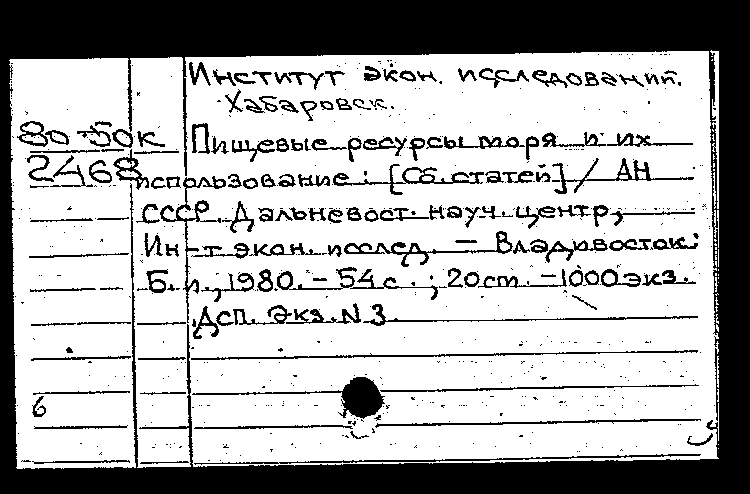 Институт экон. исследований.
Хабаровск.
80-50к Пищевые ресурсы моря и их
2468 использование: [Сб. статей] / АН
СССР. Дальневост. науч. центр,
Ин-т экон. исслед. — Владивосток:
Б. и., 1980. - 54 с. ; 20 см. - 1000 экз.
Дсп. Экз. N 3.
6